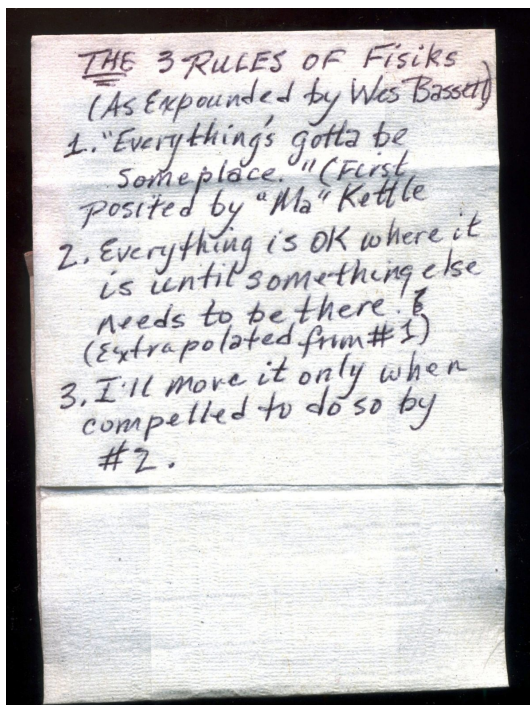 THE 3 RULES OF Fisiks
(As Expounded by Wes Bassett)
1. "Everything's gotta be
someplace." (First
posited by "Ma" Kettle
2. Everything is OK where it
is until something else
needs to be there.
(Extrapolated from #1)
3. I'll move it only when
compelled to do so by
#2.